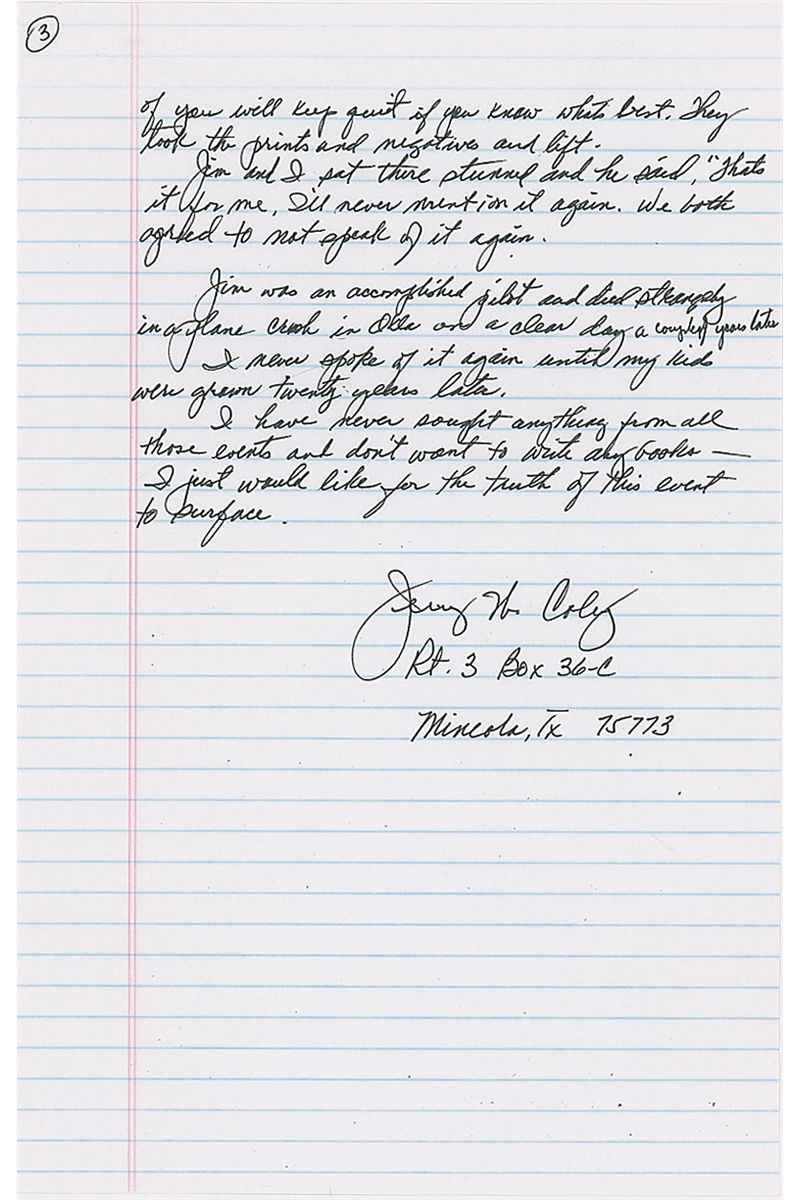 3
of you will keep quiet if you know whats best. They
took the prints and negatives and lift.
Jim and I sat there stunned and he said, "Thats
it for me, I'll never mention it again. We both
agreed to not speak of it again.
Jim was an accomplished pilot and died strangely
in a plane crash in Okla on a clear day a couple of years later
I never spoke of it again until my kids
were grown twenty years later.
I have never sought anything from all
those events and don't want to write any books —
I just would like for the truth of this event
to surface.
Jerry W. Coley
Rt. 3 Box 36-C
Mineola, Tx 75773